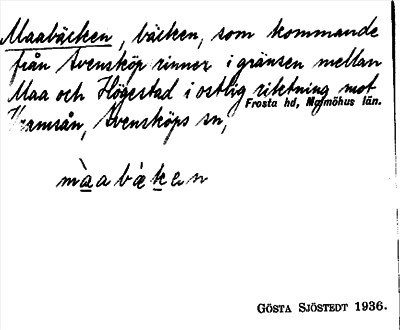 Maabäcken, bäcken, som kommande
från Svensköp rinner i gränsen mellan
Maa och Högestad i ostlig riktning mot
Frosta hd, Malmöhus län.
Kramsån, Svensköps sn,
màabäken
GÖSTA SJÖSTEDT 1936.